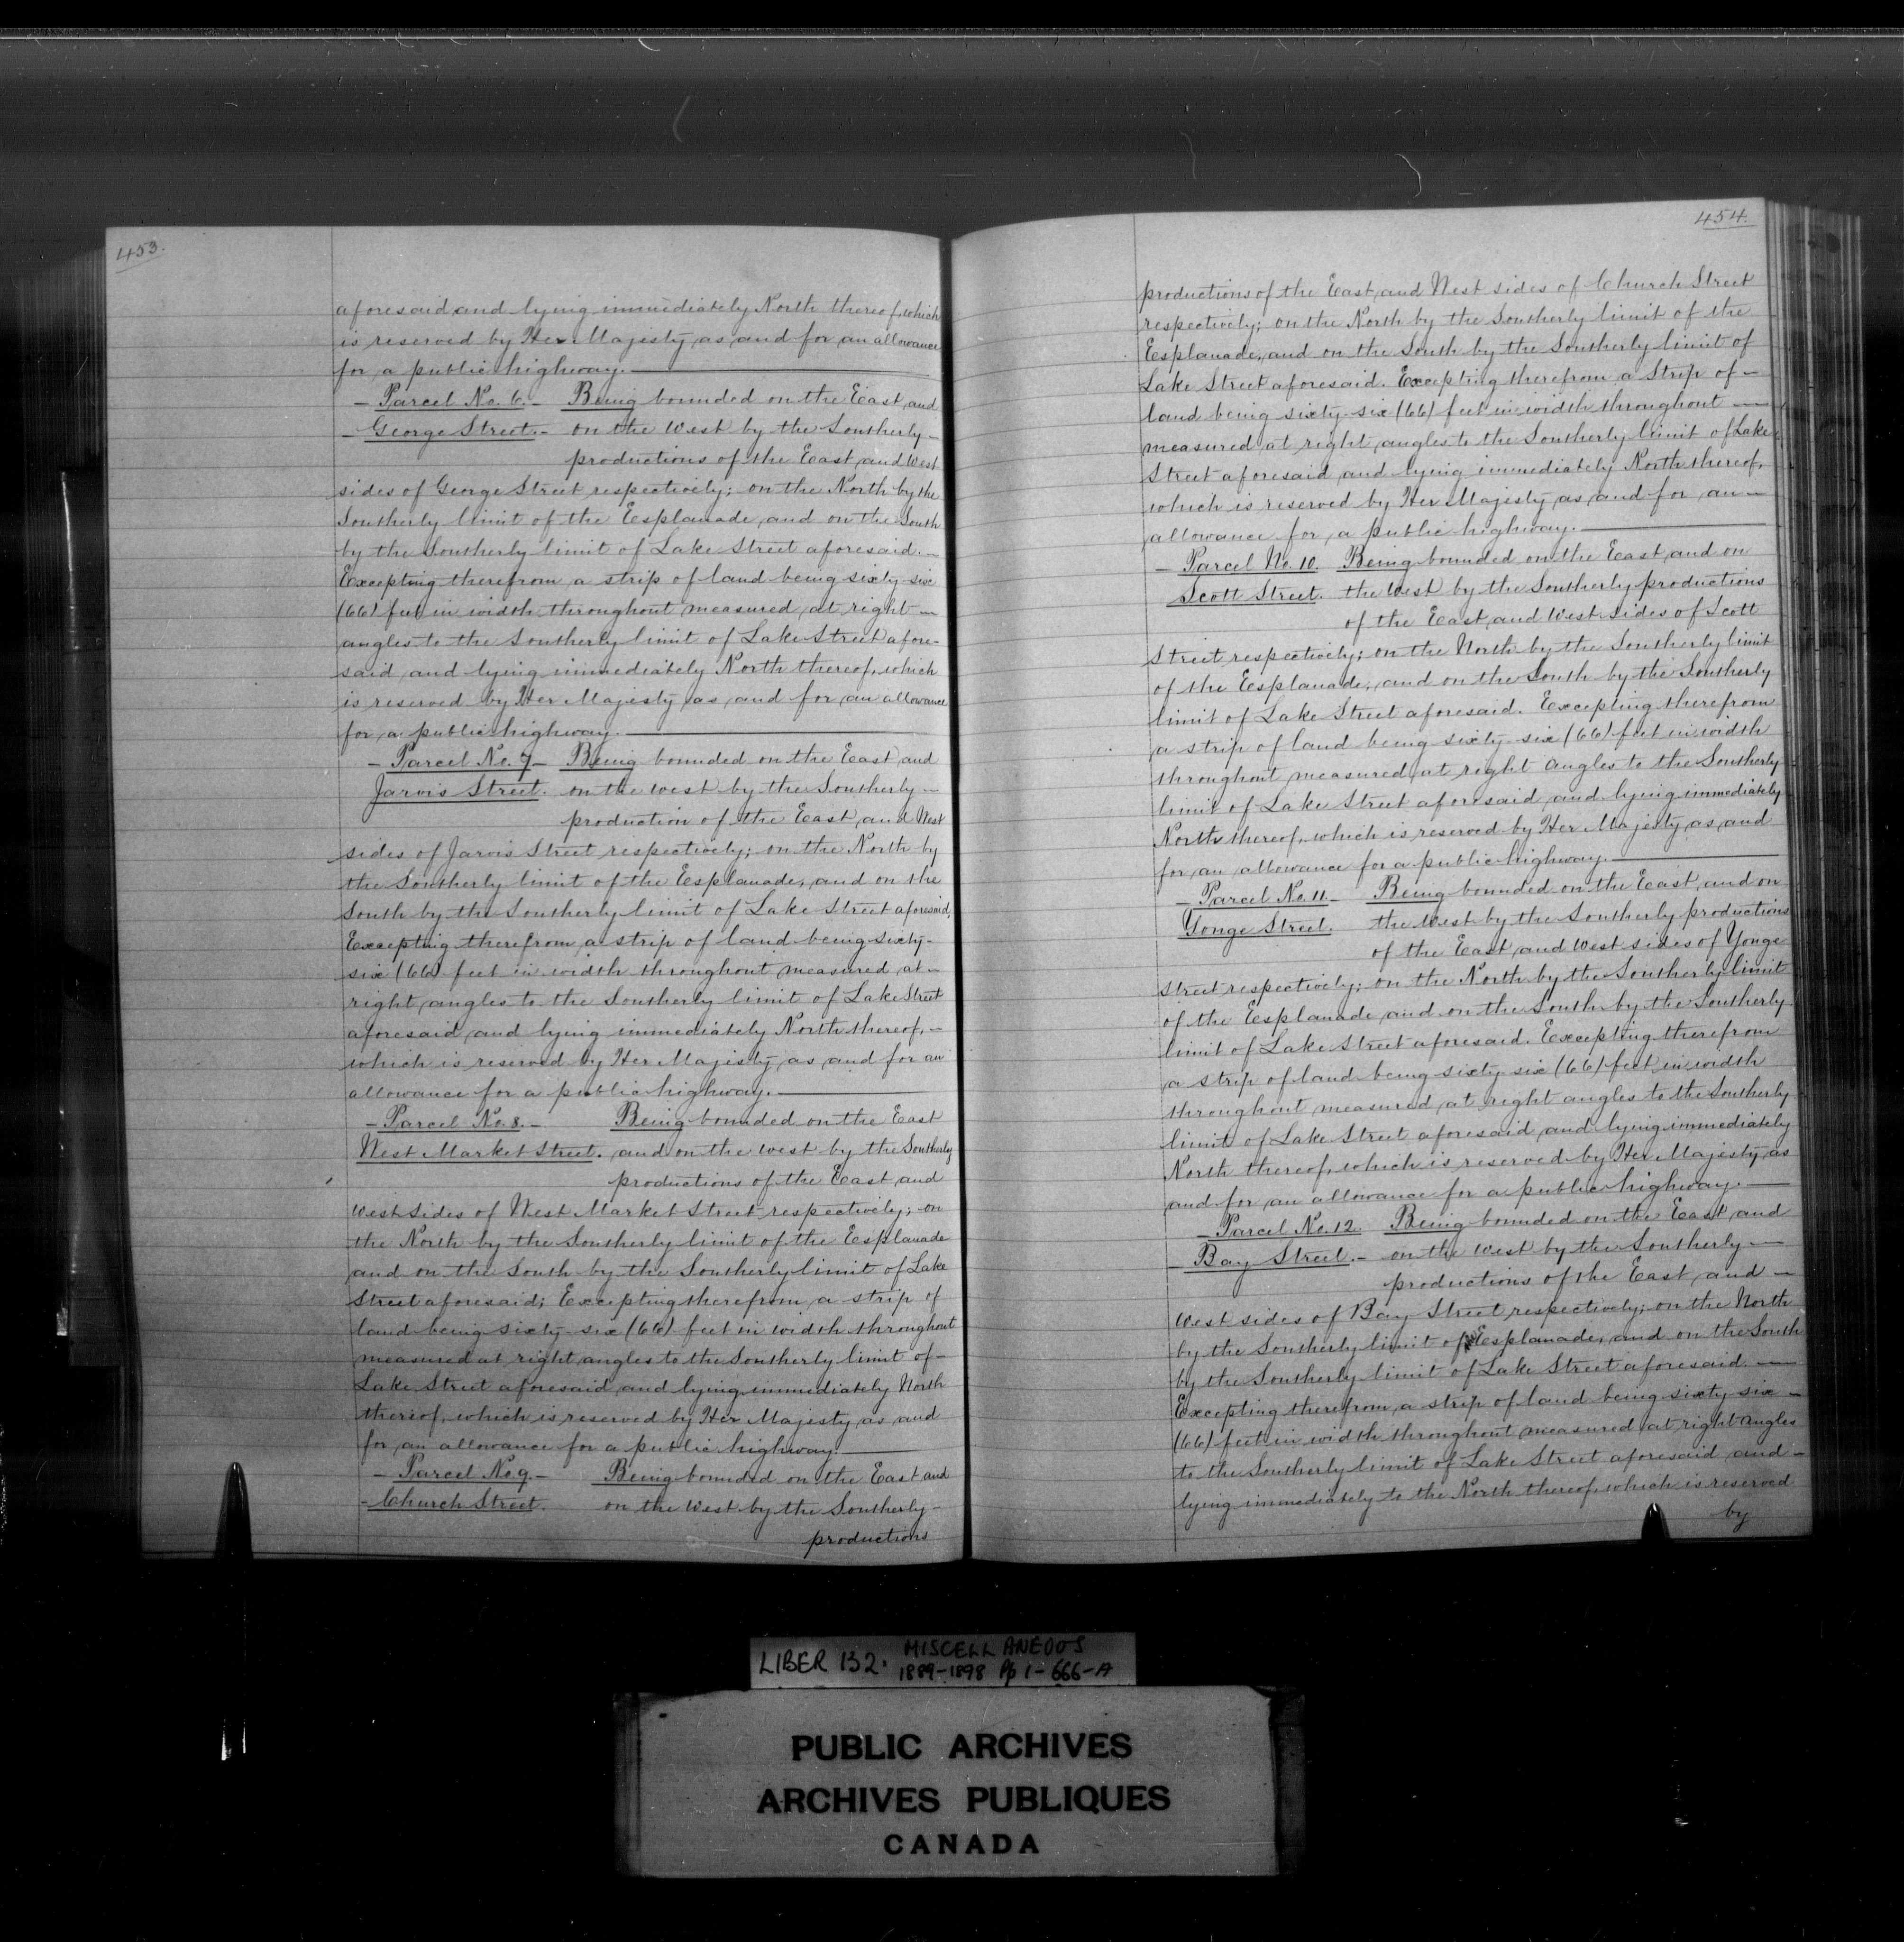 453.
aforesaid and lying immediately North thereof, which
is reserved by Her Majesty as and for an allowance
for a public highway.
- Parcel No. 6. - Being bounded on the East and
- George Street. - on the West by the Southerly -
productions of the East and West
sides of George Street respectively; on the North by the
Southerly limit of the Esplanade, and on the South
by the Southerly limit of Lake Street aforesaid. -
Excepting therefrom a strip of land being sixty-six
(66) feet in width throughout measured at right -
angles to the Southerly limit of Lake Street afore-
said and lying immediately North thereof, which
is reserved by Her Majesty as and for an allowance
for a public highway.
- Parcel No. 7 - Being bounded on the East and
Jarvis Street. on the West by the Southerly -
production of the East and West
sides of Jarvis Street respectively; on the North by
the Southerly limit of the Esplanade, and on the
South by the Southerly limit of Lake Street aforesaid,
Excepting therefrom a strip of land being sixty-
six (66) feet in width throughout measured at -
right angles to the Southerly limit of Lake Street
aforesaid and lying immediately North thereof, -
which is reserved by Her Majesty as and for an
allowance for a public highway.
- Parcel No. 8. - Being bounded on the East
West Market Street. and on the West by the Southerly
productions of the East and
West sides of West Market Street respectively; on
the North by the Southerly limit of the Esplanade
and on the South by the Southerly limit of Lake
Street aforesaid; Excepting therefrom a strip of
land being sixty-six (66) feet in width throughout
measured at right angles to the Southerly limit of -
Lake Street aforesaid and lying immediately North
thereof, which is reserved by Her Majesty as and
for an allowance for a public highway.
- Parcel No 9. - Being bounded on the East and
- Church Street. on the West by the Southerly -
productions
454.
productions of the East and West sides of Church Street
respectively; on the North by the Southerly limit of the
Esplanade, and on the South by the Southerly limit of
Lake Street aforesaid. Excepting therefrom a Strip of -
land being sixty-six (66) feet in width throughout -
measured at right angles to the Southerly limit of Lake
Street aforesaid and lying immediately North thereof,
which is reserved by Her Majesty as and for an -
allowance for a public highway.
- Parcel No. 10. Being bounded on the East and on
Scott Street. the West by the Southerly productions
of the East and West sides of Scott
Street respectively; on the North by the Southerly limit
of the Esplanade, and on the South by the Southerly
limit of Lake Street aforesaid. Excepting therefrom
a strip of land being sixty-six (66) feet in width
throughout measured at right angles to the Southerly
limit of Lake Street aforesaid and lying immediately
North thereof, which is reserved by Her Majesty as and
for an allowance for a public highway.
- Parcel No. 11. - Being bounded on the East and on
Yonge Street. the West by the Southerly productions
of the East and West sides of Yonge
Street respectively; on the North by the Southerly limit
of the Esplanade and on the South by the Southerly
limit of Lake Street aforesaid. Excepting therefrom
a strip of land being sixty six (66) feet in width
throughout measured at right angles to the Southerly
limit of Lake Street aforesaid and lying immediately
North thereof, which is reserved by Her Majesty as
and for an allowance for a public highway. -
- Parcel No. 12. Being bounded on the East and
- Bay Street. - on the West by the Southerly -
productions of the East and -
West sides of Bay Street respectively; on the North
by the Southerly limit of Esplanade, and on the South
by the Southerly limit of Lake Street aforesaid. -
Excepting therefrom a strip of land being sixty six -
(66) feet in width throughout measured at right angles
to the Southerly limit of Lake Street aforesaid and -
lying immediately to the North thereof, which is reserved
by
LIBER 132. MISCELLANEOUS
1889-1898 Pp 1-666-A
PUBLIC ARCHIVES
ARCHIVES PUBLIQUES
CANADA